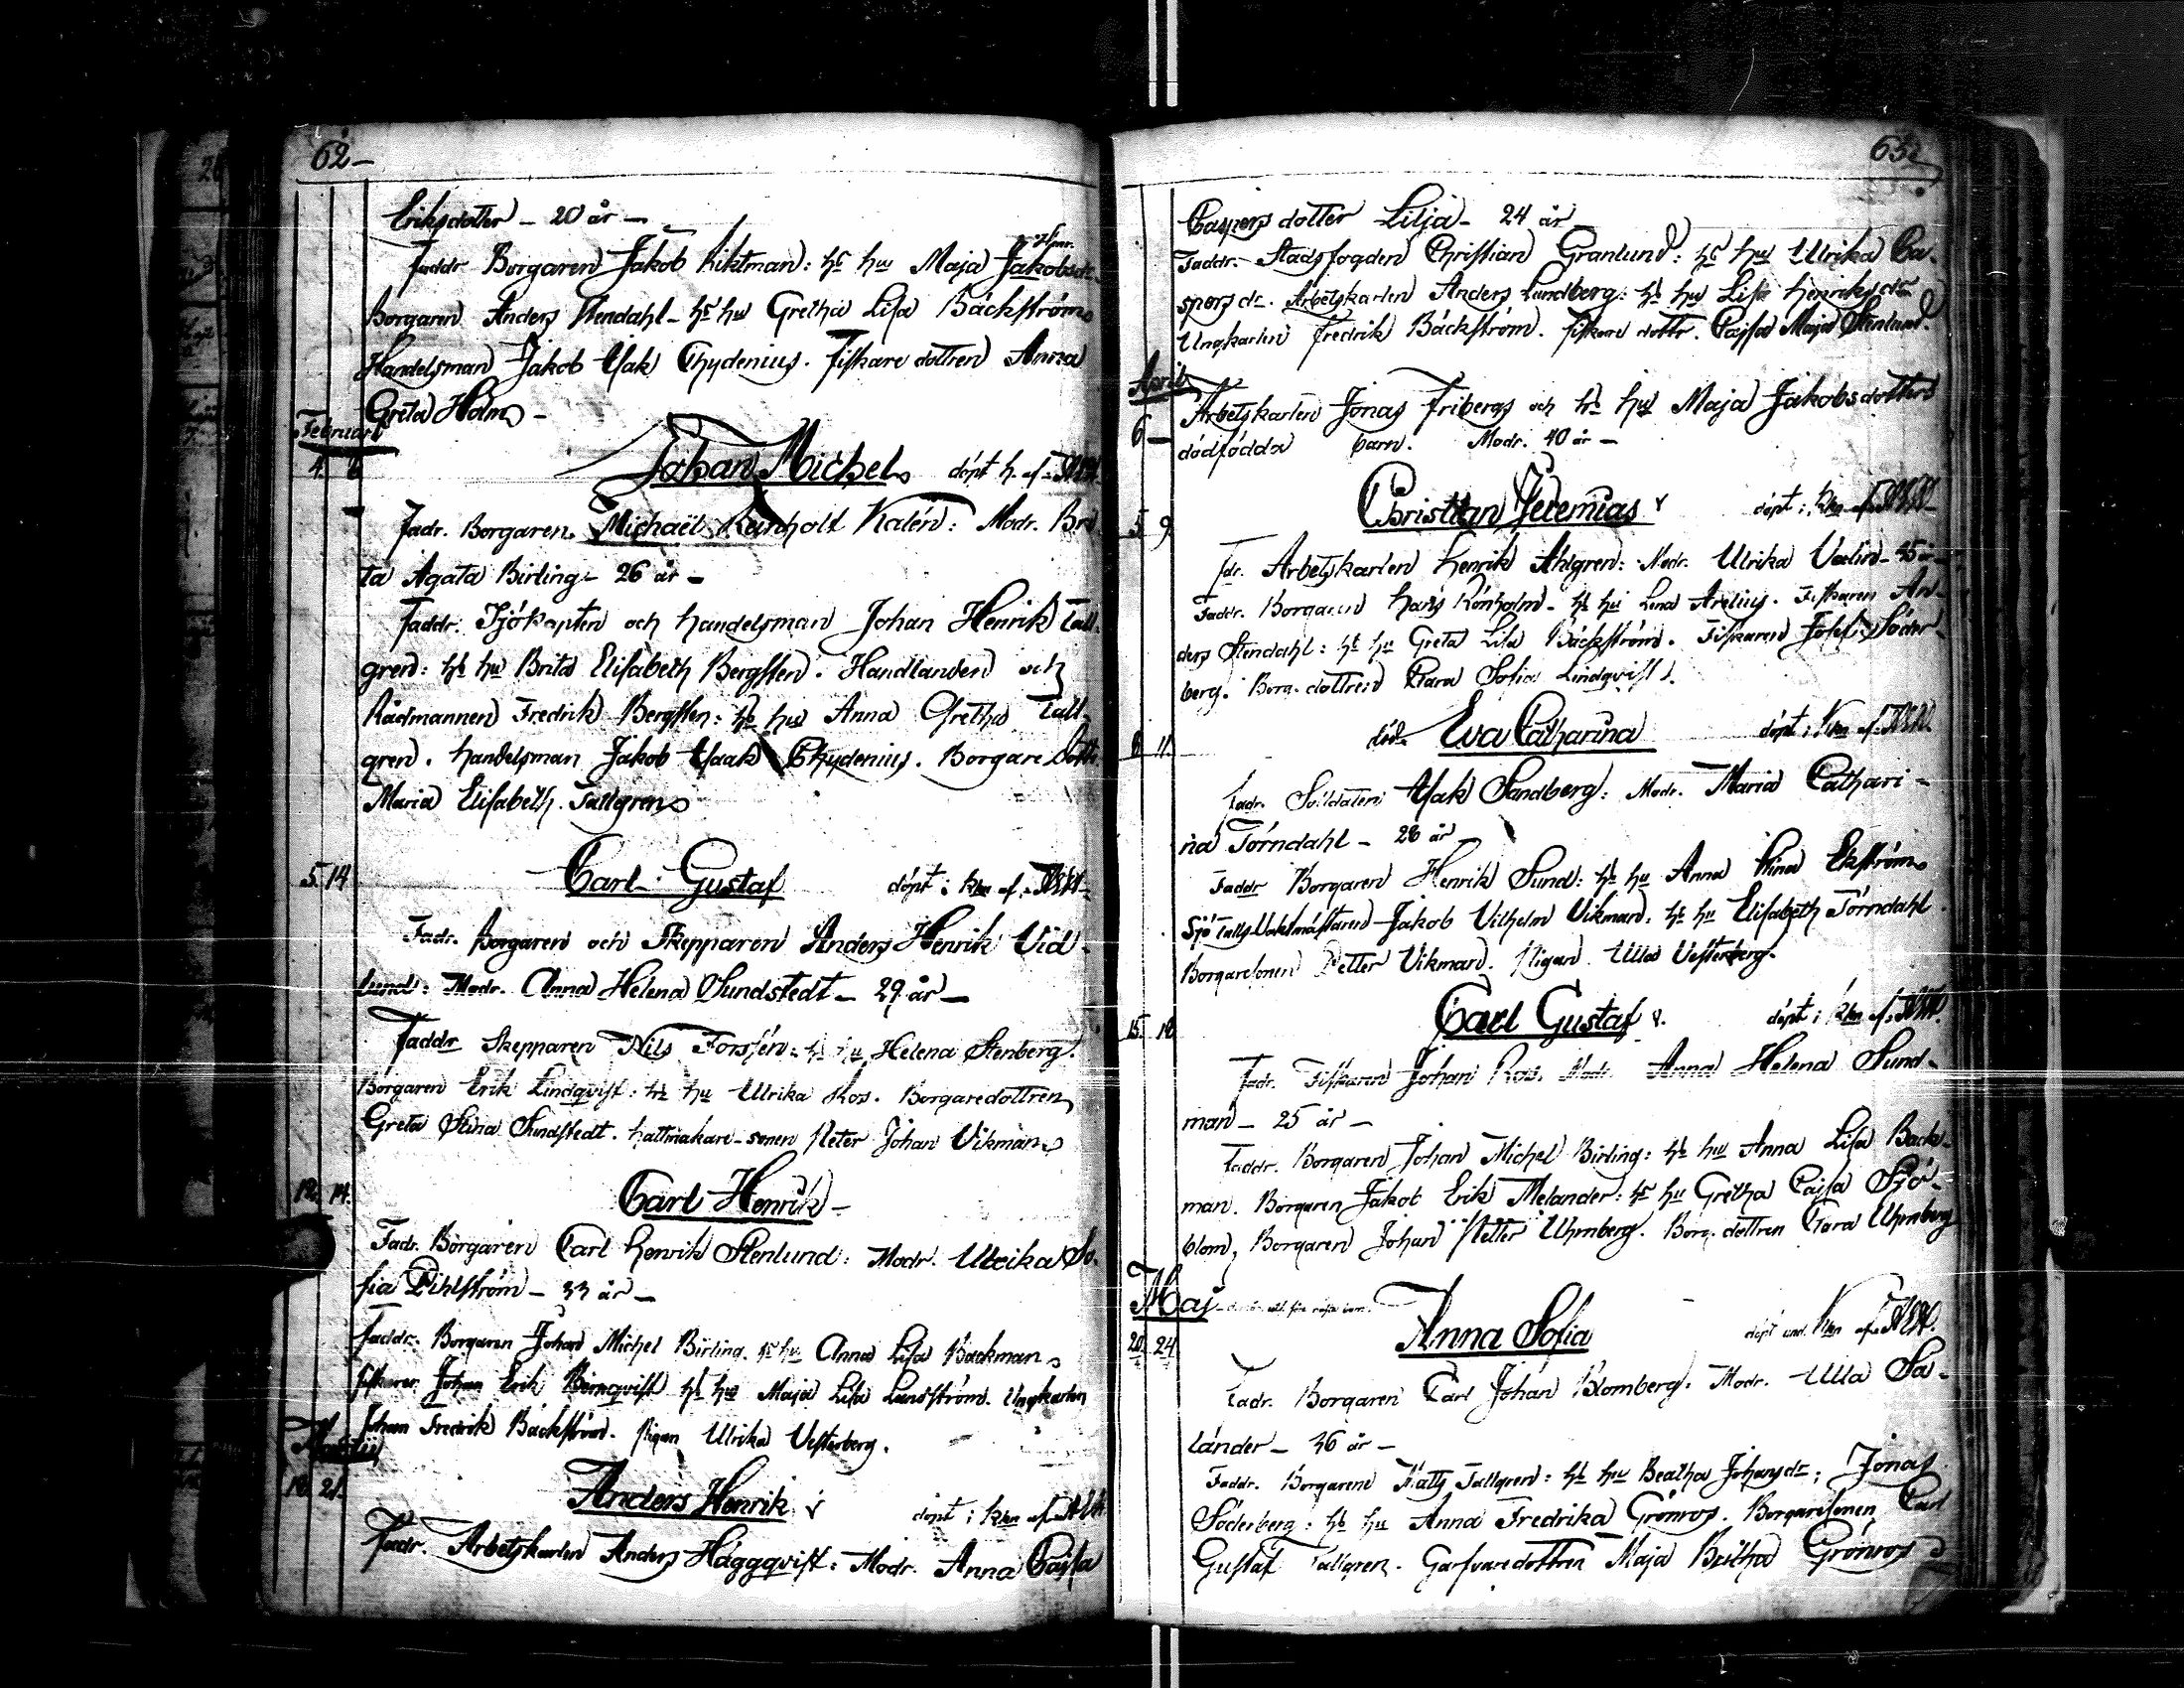 62
Eriksdotter – 20 år –
Faddr Borgaren Jakob Riktman: hs hu Maja Jakobsdr
Borgaren Anders Stendahl – hs hu Gretha Lisa Bäckström
Handelsman Jakob Isak Chydenius. Fiskare dottren Anna
Greta Holm –
Februari
4. 6
Johan Michel döpt h. af
Fadr. Borgaren Michaël Reinholt Kalén: Modr. Bri
ta Agata Birling – 26 år –
Faddr. Sjökapten och handelsman Johan Henrik Tall-
gren: hs hu Brita Elisabeth Bergsten. Handlanden och
Rådmannen Fredrik Bergsten: hs hu Anna Gretha Tall-
gren. handelsman Jakob Isaak Chydenius. Borgare dottr
Maria Elisabeth Tallgren
5. 14 Carl Gustaf döpt i kkn af
Fadr. Borgaren och Skepparen Anders Henrik Vid-
lund: Modr. Anna Helena Sundstedt – 29 år –
Faddr Skepparen Nils Forssén: hs hu Helena Stenberg.
Borgaren Erik Lindqvist: hs hu Ulrika Ros. Borgaredottren
Greta Stina Sundstedt. hattmakare-sonen Peter Johan Vikman
12. 14. Carl Henrik –
Fadr. Borgaren Carl Henrik Stenlund: Modr. Ulrika So-
fia Pihlström – 33 år –
Faddr. Borgaren Johan Michel Birling. hs hu Anna Lisa Backman
fiskaren Johan Erik Björnqvist hs hu Maja Lisa Lundström. Ungkarlen
Johan Fredrik Bäckström. Pigan Ulrika Vesterberg.
Martii
18 21. Anders Henrik döpt i kkn af
Fadr. Arbetskarlen Anders Häggqvist: Modr. Anna Caisa
63
Caspersdotter Lilja – 24 år
Faddr. Stadsfogden Christian Granlund: hs hu Ulrika Ca-
spersdr. Arbetskarlen Anders Lundberg: hs hu Lisa Henriksdr
Ungkarlen Fredrik Bäckström. fiskare dottr. Cajsa Maja Stenlund.
April
6 – Arbetskarlen Jonas Fribergs och hs hus Maja Jakobsdotters
dödfödda barn. Modr. 40 år –
5 9. Christian Jeremias döpt i kkn af
Fdr. Arbetskarlen Henrik Ahlgren: Modr. Ulrika Valin – 35 år –
Faddr. Borgaren Hans Rönholm – hs hu Lena Arelius. Fiskaren An-
ders Stendahl: hs hu Greta Lisa Bäckström. Fiskaren Josef Söder-
berg. Borg. dottren Clara Sofia Lindqvist.
8 11. död. Eva Catharina döpt i kkn af
Fadr. Soldaten Isak Sandberg: Modr. Maria Cathari-
na Törndahl – 28 år
Faddr Borgaren Henrik Sund: hs hu Anna Stina Ekström
Sjötullsvaktmästaren Jakob Vilhelm Vikman: hs hu Elisabeth Törndahl
Borgaresonen Petter Vikman. Pigan Ulla Vesterberg.
15. 18 Carl Gustaf döpt i kkn af
Fadr. Fiskaren Johan Ros. Modr. Anna Helena Sund-
man – 25 år –
Faddr. Borgaren Johan Michel Birling: hs hu Anna Lisa Back-
man. Borgaren Jakob Erik Melander: hs hu Gretha Cajsa Sjö-
blom, Borgaren Johan Petter Uhrnberg. Borg. dottren Clara Uhrnberg
Maj
20. 24. Anna Sofia döpt und. kkn af
Fadr. Borgaren Carl Johan Blomberg. Modr. Ulla Sa-
länder – 36 år –
Faddr. Borgaren Matts Tallgren: hs hu Beatha Johansdr: Jonas
Söderberg: hs hu Anna Fredrika Grönros. Borgaresonen Carl
Gustaf Tallgren. Garfvaredottren Maja Britha Grönros